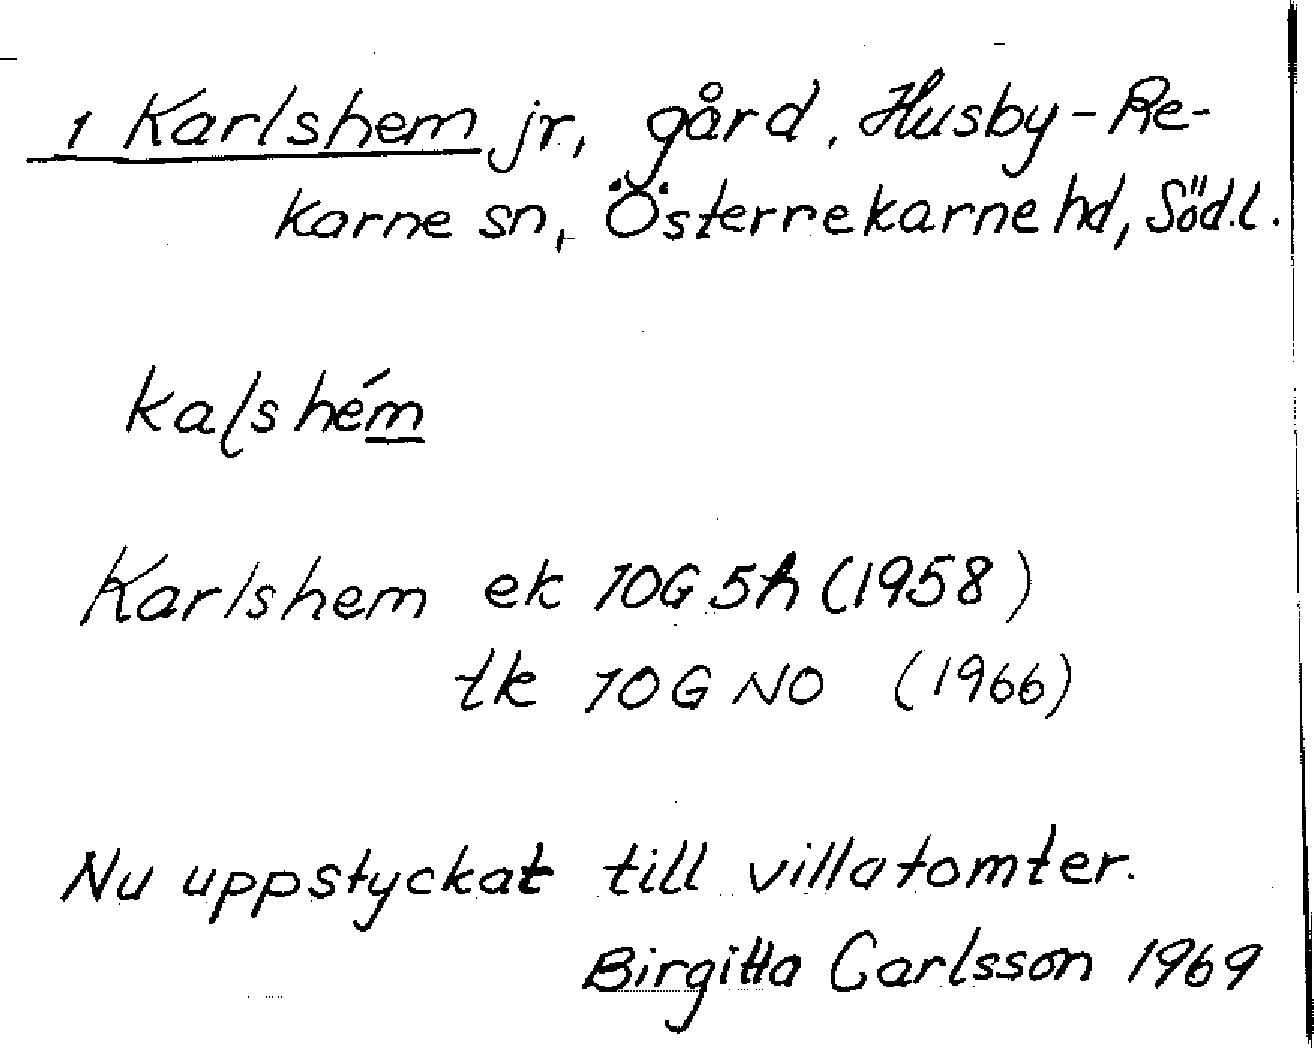 1 Karlshem jr, gård, Husby-Re-
karne sn, Österrekarne hd, Söd.l.
kaɭshém
Karlshem ek 10G 5h (1958)
tk 10G NO (1966)
Nu uppstyckat till villatomter.
Birgitta Carlsson 1969